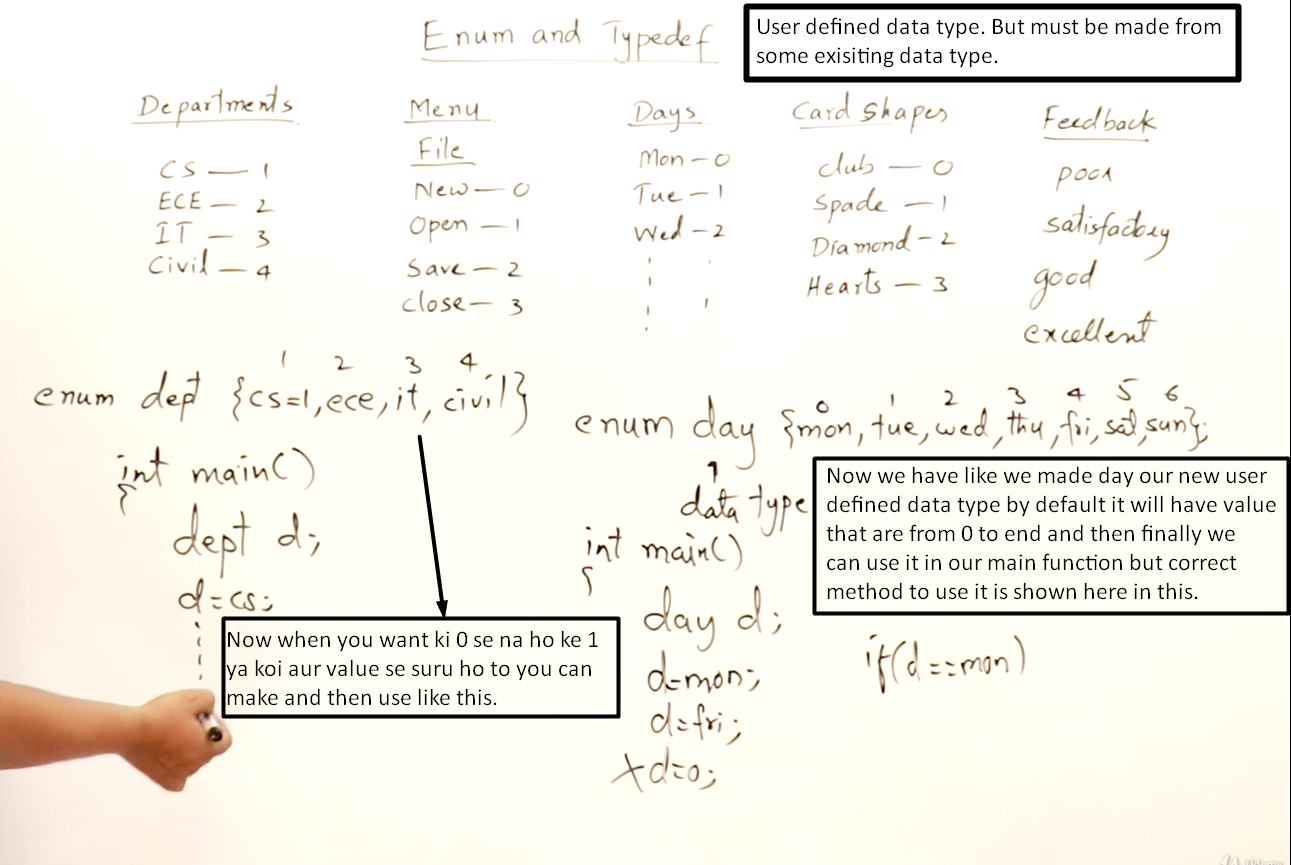 Enum and Typedef
User defined data type. But must be made from
some exisiting data type.
Departments
CS — 1
ECE — 2
IT — 3
Civil — 4
Menu
File
New — 0
Open — 1
Save — 2
close — 3
Days
Mon — 0
Tue — 1
Wed — 2
Card Shapes
club — 0
Spade — 1
Diamond — 2
Hearts — 3
Feedback
poor
satisfactory
good
excellent
1 2 3 4
enum dept {cs=1,ece,it,civil}
int main()
{
dept d;
d=cs;
Now when you want ki 0 se na ho ke 1
ya koi aur value se suru ho to you can
make and then use like this.
0 1 2 3 4 5 6
enum day {mon,tue,wed,thu,fri,sat,sun};
data type
Now we have like we made day our new user
defined data type by default it will have value
that are from 0 to end and then finally we
can use it in our main function but correct
method to use it is shown here in this.
int main()
{
day d;
d=mon;
d=fri;
x d=0;
if(d==mon)